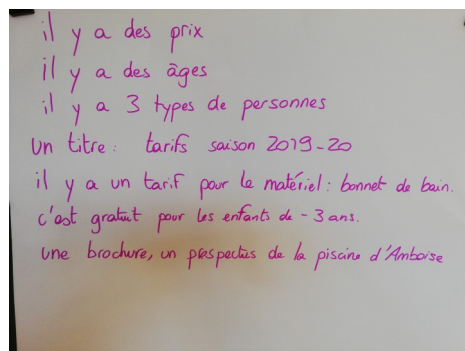 il y a des prix
il y a des âges
il y a 3 types de personnes
un titre : tarifs saison 2019-20
il y a un tarif pour le matériel : bonnet de bain.
c'est gratuit pour les enfants de - 3 ans.
une brochure, un prespectus de la piscine d'Amboise